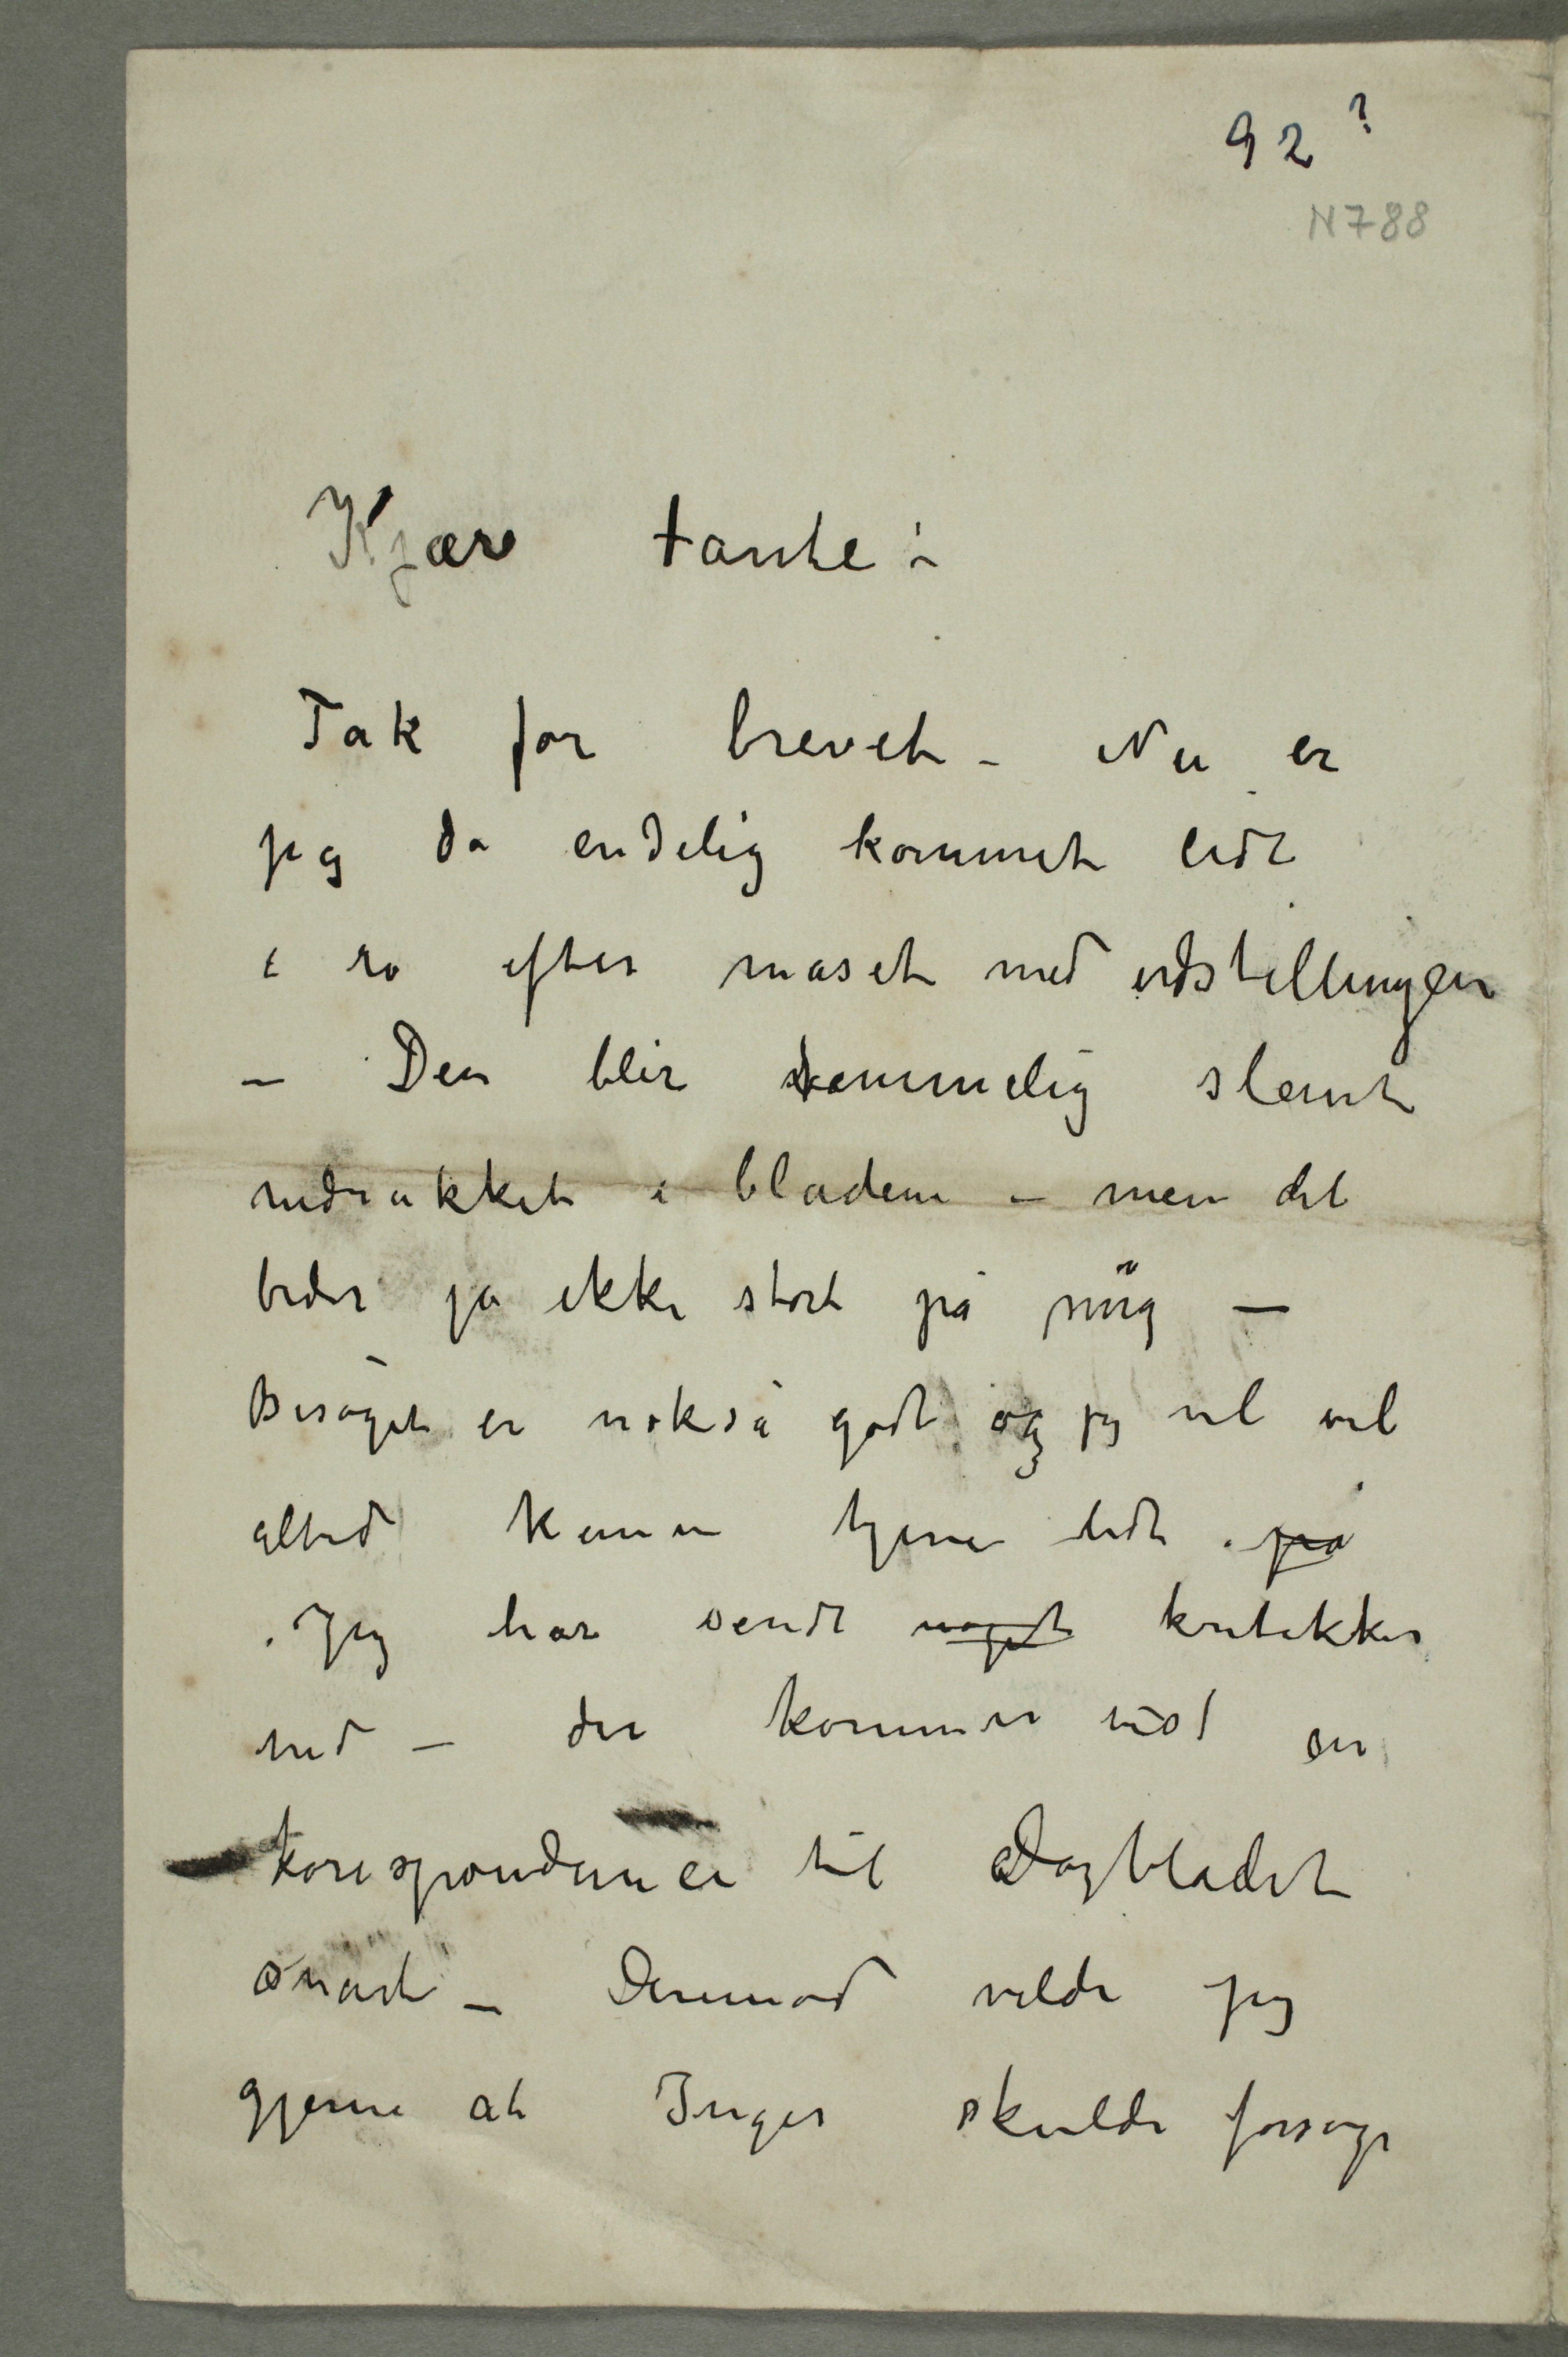 92?
N788
Kjære tante!
Tak for brevet – Nu er
jeg da endelig kommet lidt
i ro efter maset med udstillingen
– Den blir temmelig slemt
nedrakket i bladene – men det
bider jo ikke stort på mig –
Besøget er nokså godt og jeg vil vel
altid kunne tjene lidt. på
. Jeg har sendt noget kritikker
ned – der kommer vist en
korespondence til Dagbladet
snart – Derimod vilde jeg
gjerne at Inger skulde forsøge